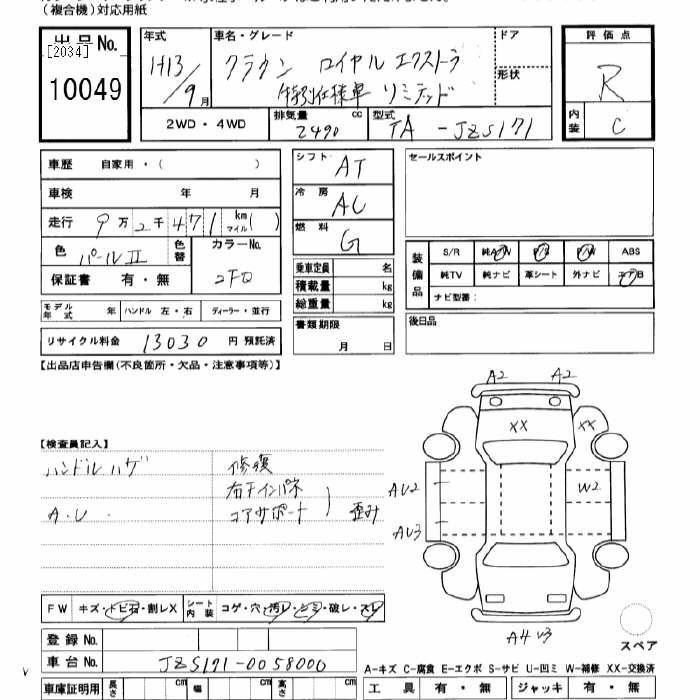 （複合機）対応用紙
出品No.
[2034]
10049
年式
H13/9月
車名・グレード
クラウン ロイヤル エクストラ
特別仕様車 リミテッド
ドア
形状
評価点
R
内装
C
2WD・4WD
排気量
2490 cc
型式
TA-JZS171
車歴 自家用・（ ）
車検 年 月
走行 9万2千471 km マイル( )
色 パールII
色替
カラーNo.
2FD
保証書 有・無
シフト
AT
冷房
AC
燃料
G
乗車定員 名
積載量 kg
総重量 kg
書類期限
月 日
セールスポイント
装備品
S/R 純A/W P/S P/W ABS
純TV 純ナビ 革シート 外ナビ エアB
ナビ型番：
後日品
モデル年式 年 ハンドル 左・右 ディーラー・並行
リサイクル料金 13030 円 預託済
【出品店申告欄(不良箇所・欠品・注意事項等)】
【検査員記入】
ハンドルハゲ
A.U
修復
右インパネ
コアサポート
歪み
A2 A2
XX XX
AU2
W2
AU3
A4 U3
スペア
FW キズ・トビ石・割レX
シート内装 コゲ・穴・汚レ・シミ・破レ・スレ
登録No.
車台No. JZS171-0058000
車庫証明用 長さ cm 幅 cm 高さ cm
A-キズ C-腐食 E-エクボ S-サビ U-凹ミ W-補修 XX-交換済
工具 有・無 ジャッキ 有・無